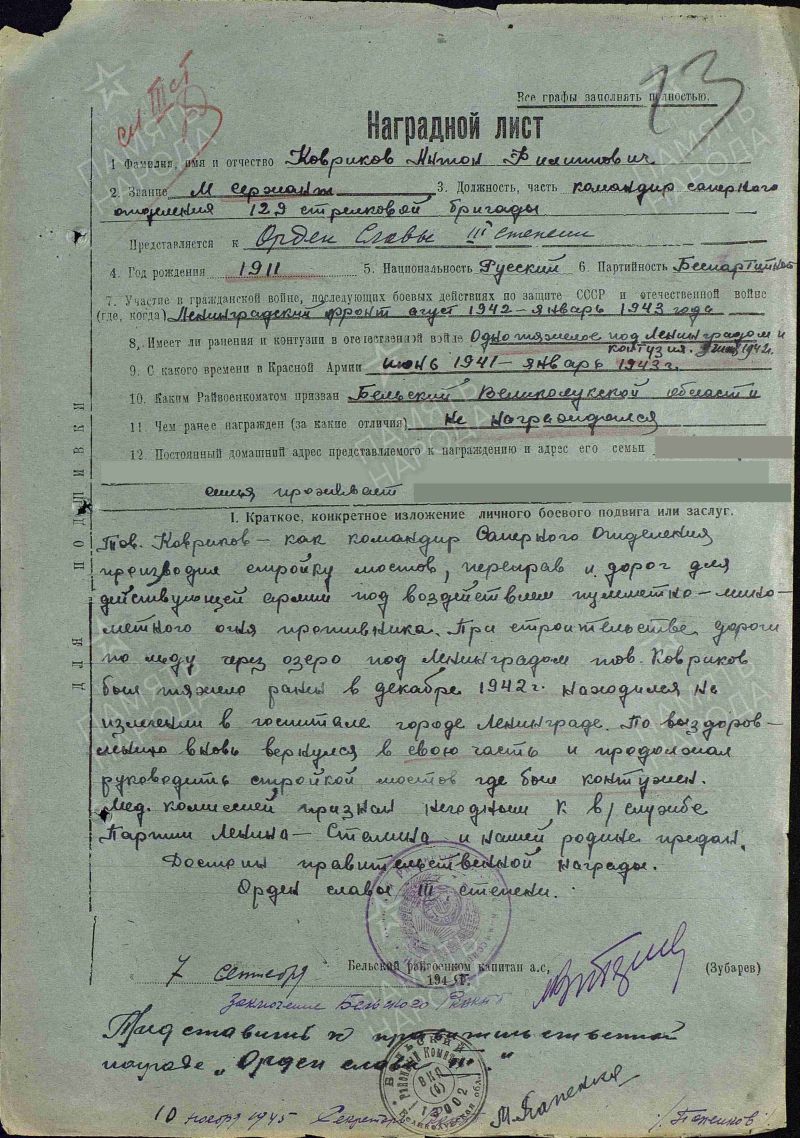 см. III ст
23
Все графы заполнять полностью.
Наградной лист
1 Фамилия, имя и отчество Ковриков Антон Филиппович
2. Звание М сержант 3. Должность, часть командир саперного
отделения 129 стрелковой бригады
Представляется к Орден Славы III степени
4. Год рождения 1911 5. Национальность Русский 6. Партийность Беспартийный
7. Участие в гражданской войне, последующих боевых действиях по защите СССР и отечественной войне
(где, когда) Ленинградский фронт август 1942 – январь 1943 года
8. Имеет ли ранения и контузии в отечественной войне Одно тяжелое под Ленинградом и
контузия. 1942г.
9. С какого времени в Красной Армии июнь 1941 – январь 1943 г.
10. Каким Райвоенкоматом призван Бельский Великолукской области
11. Чем ранее награжден (за какие отличия) Не награждался
12. Постоянный домашний адрес представляемого к награждению и адрес его семьи
семья проживает
I. Краткое, конкретное изложение личного боевого подвига или заслуг.
Тов. Ковриков – как командир Саперного Отделения
производил стройку мостов, переправ и дорог для
действующей армии под воздействием пулеметно – мино-
метного огня противника. При строительстве дороги
по льду через озеро под Ленинградом тов. Ковриков
был тяжело ранен в декабре 1942 г. находился на
излечении в госпитале городе Ленинграде. По выздоров-
лению вновь вернулся в свою часть и продолжал
руководить стройкой мостов где был контужен.
Мед. комиссией признан негодным к в/службе
Партии Ленина – Сталина и нашей родине предан.
Достоин правительственной награды.
Орден славы III степени.
7 сентября 1945 г.
Бельский райвоенком капитан а.с. (Зубарев)
Заключение Бельского
Представить к правительственной
награде „Орден славы III"
10 ноября 1945 Секретарь
ДЛЯ ПОДШИВКИ
ПАМЯТЬ НАРОДА